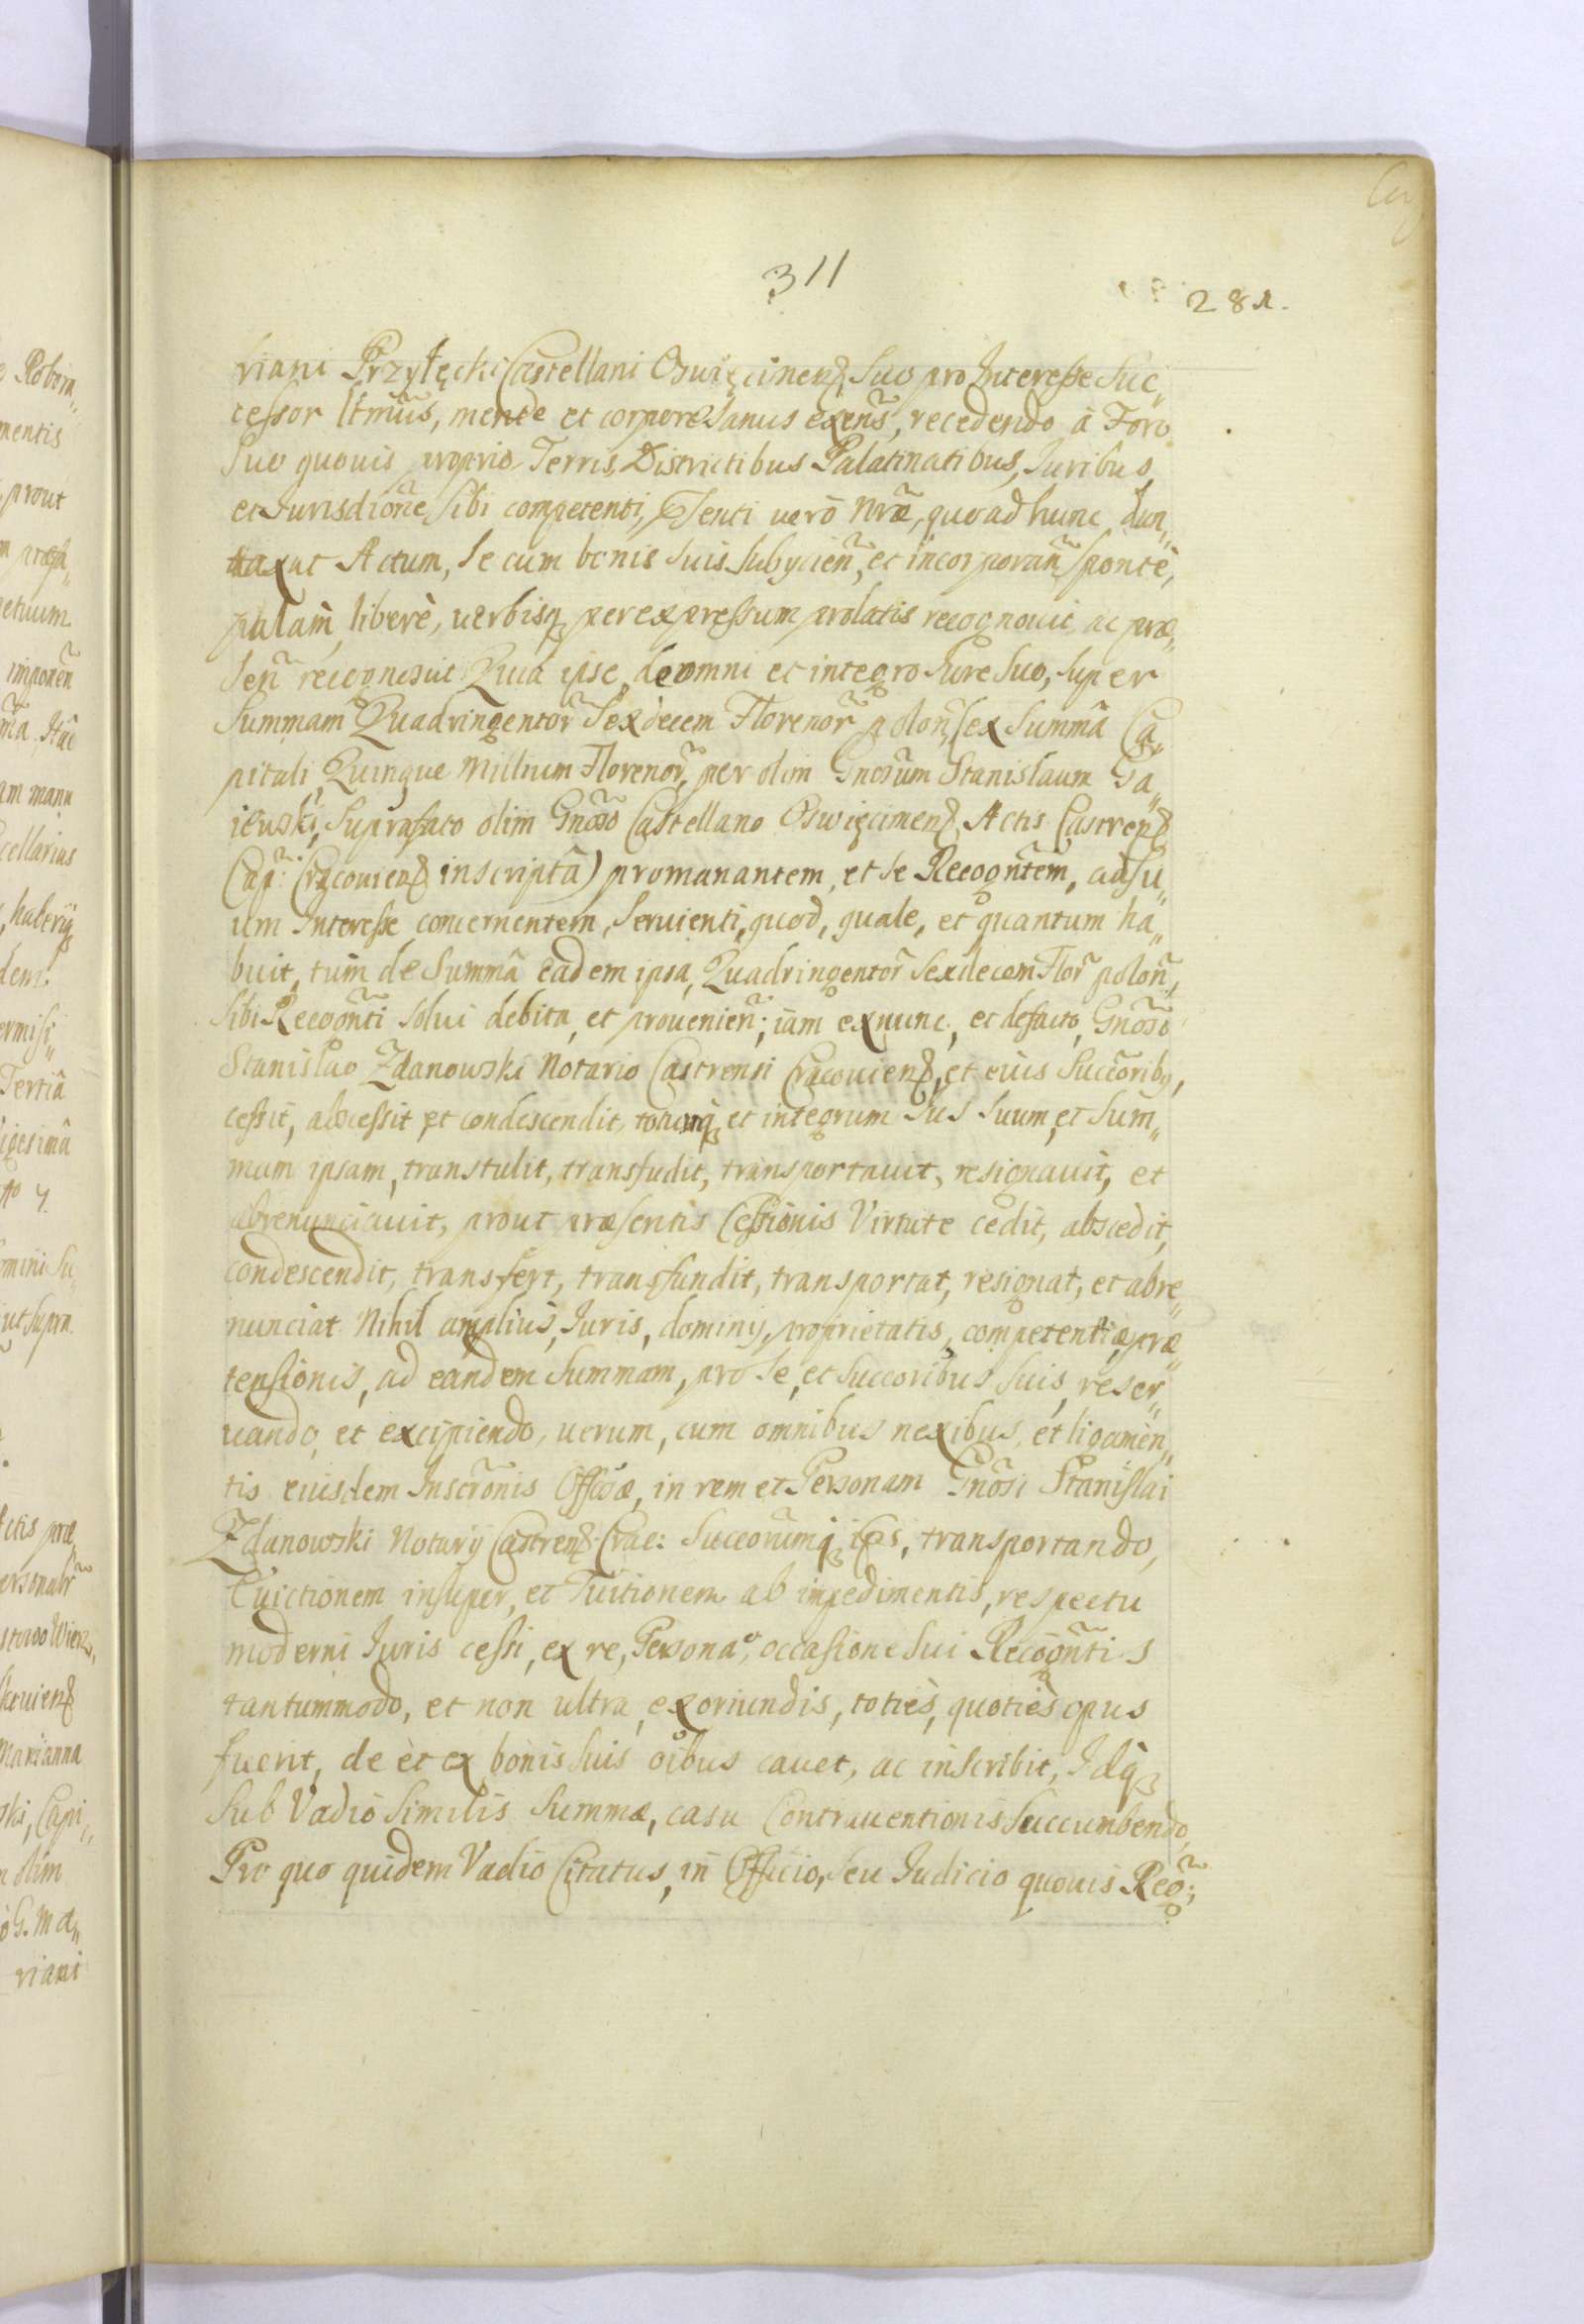 311
281.
riani Przyłęcki Castellani Oswięcimens, Suo pro Interesse Suc„
cessor ltm̃us, mente et corpore Sanus exens̃, recedendo à Foro
Suo quouis proprio Terris, Districtibus Palatinatibus, Iuribus,
et Iurisdiõne sibi competenti, Pñsenti verò nr̃æ, quo ad hunc dun„
taxat Actum, Se cum bonis suis subycien̄, et incorporan̄ sponte,
palàm liberè, uerbisq; per expressum prolatis recognouit, ac præ„
sen̄ recognoscit Quià ipse, de omni et integro Iure Suo, super
Summam Quadringentor̃ Sexdecem Florenor̃ polon̄, (ex Summâ Ca„
pitali Quinque Millium Florenor̃, per olim Gnõsum Stanislaum Ga„
iewski, Suprafato olim Gnõso Castellano Oswięcimens, Actis Castrens
Cap̃: Cracouiens inscriptâ) promanantem, et se Recogñtem, ad su„
um Interesse concernentem, Seruienti, quod, quale, et quantum ha„
buit, tùm de Summâ eadem ipsa, Quadringentor̃ Sexdecem Flor̃ polon̄,
sibi Recogñti solui debita, et prouenien̄; iam ex nunc, et defacto, Gnõso
Stanislao Zdanowski Notario Castrensi Cracouiens, et eius Succõriby,
cessit, abscessit et condescendit, totumq; et integrum Ius Suum, et Sum„
mam ipsam, transtulit, transfudit, transportauit, resignauit, et
abrenunciauit, prout præsentis Cessionis Virtute cedit, abscedit,
condescendit, transfert, transfundit, transportat, resignat, et abre„
nunciat Nihil ampliùs, Iuris, dominÿ, proprietatis, competentiæ, præ„
tensionis, ad eandem Summam, pro Se, et succoribus suis, reser„
uando, et excipiendo, uerum, cum omnibus nexibus, et ligamèn„
tis eiusdem Inscr̃onis Officõsæ, in rem et Personam Gnõsi Stanislai
Zdanowski Notarÿ Castrens Crac: Succorumq; ips, transportando,
Euictionem insuper, et Tuitionem ab impedimentis, respectu
moderni Iuris cessi, ex re, Persona, occasione sui Recogñtis
tantummodo, et non ultra, exoriundis, toties, quoties opus
fuerit, de et ex bonis suis oĩbus cauet, ac inscribit, Idq;
Sub Vadio Similis Summæ, casu Contrauentionis succumbendo,
Pro quo quidem Vadio Citatus, in Officio, seu Iudicio quouis Reg̃:;